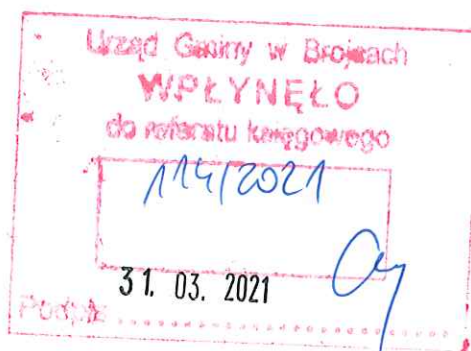 Urząd Gminy w Brojcach
WPŁYNĘŁO
do referatu księgowego
114/2021
31. 03. 2021
Podpis